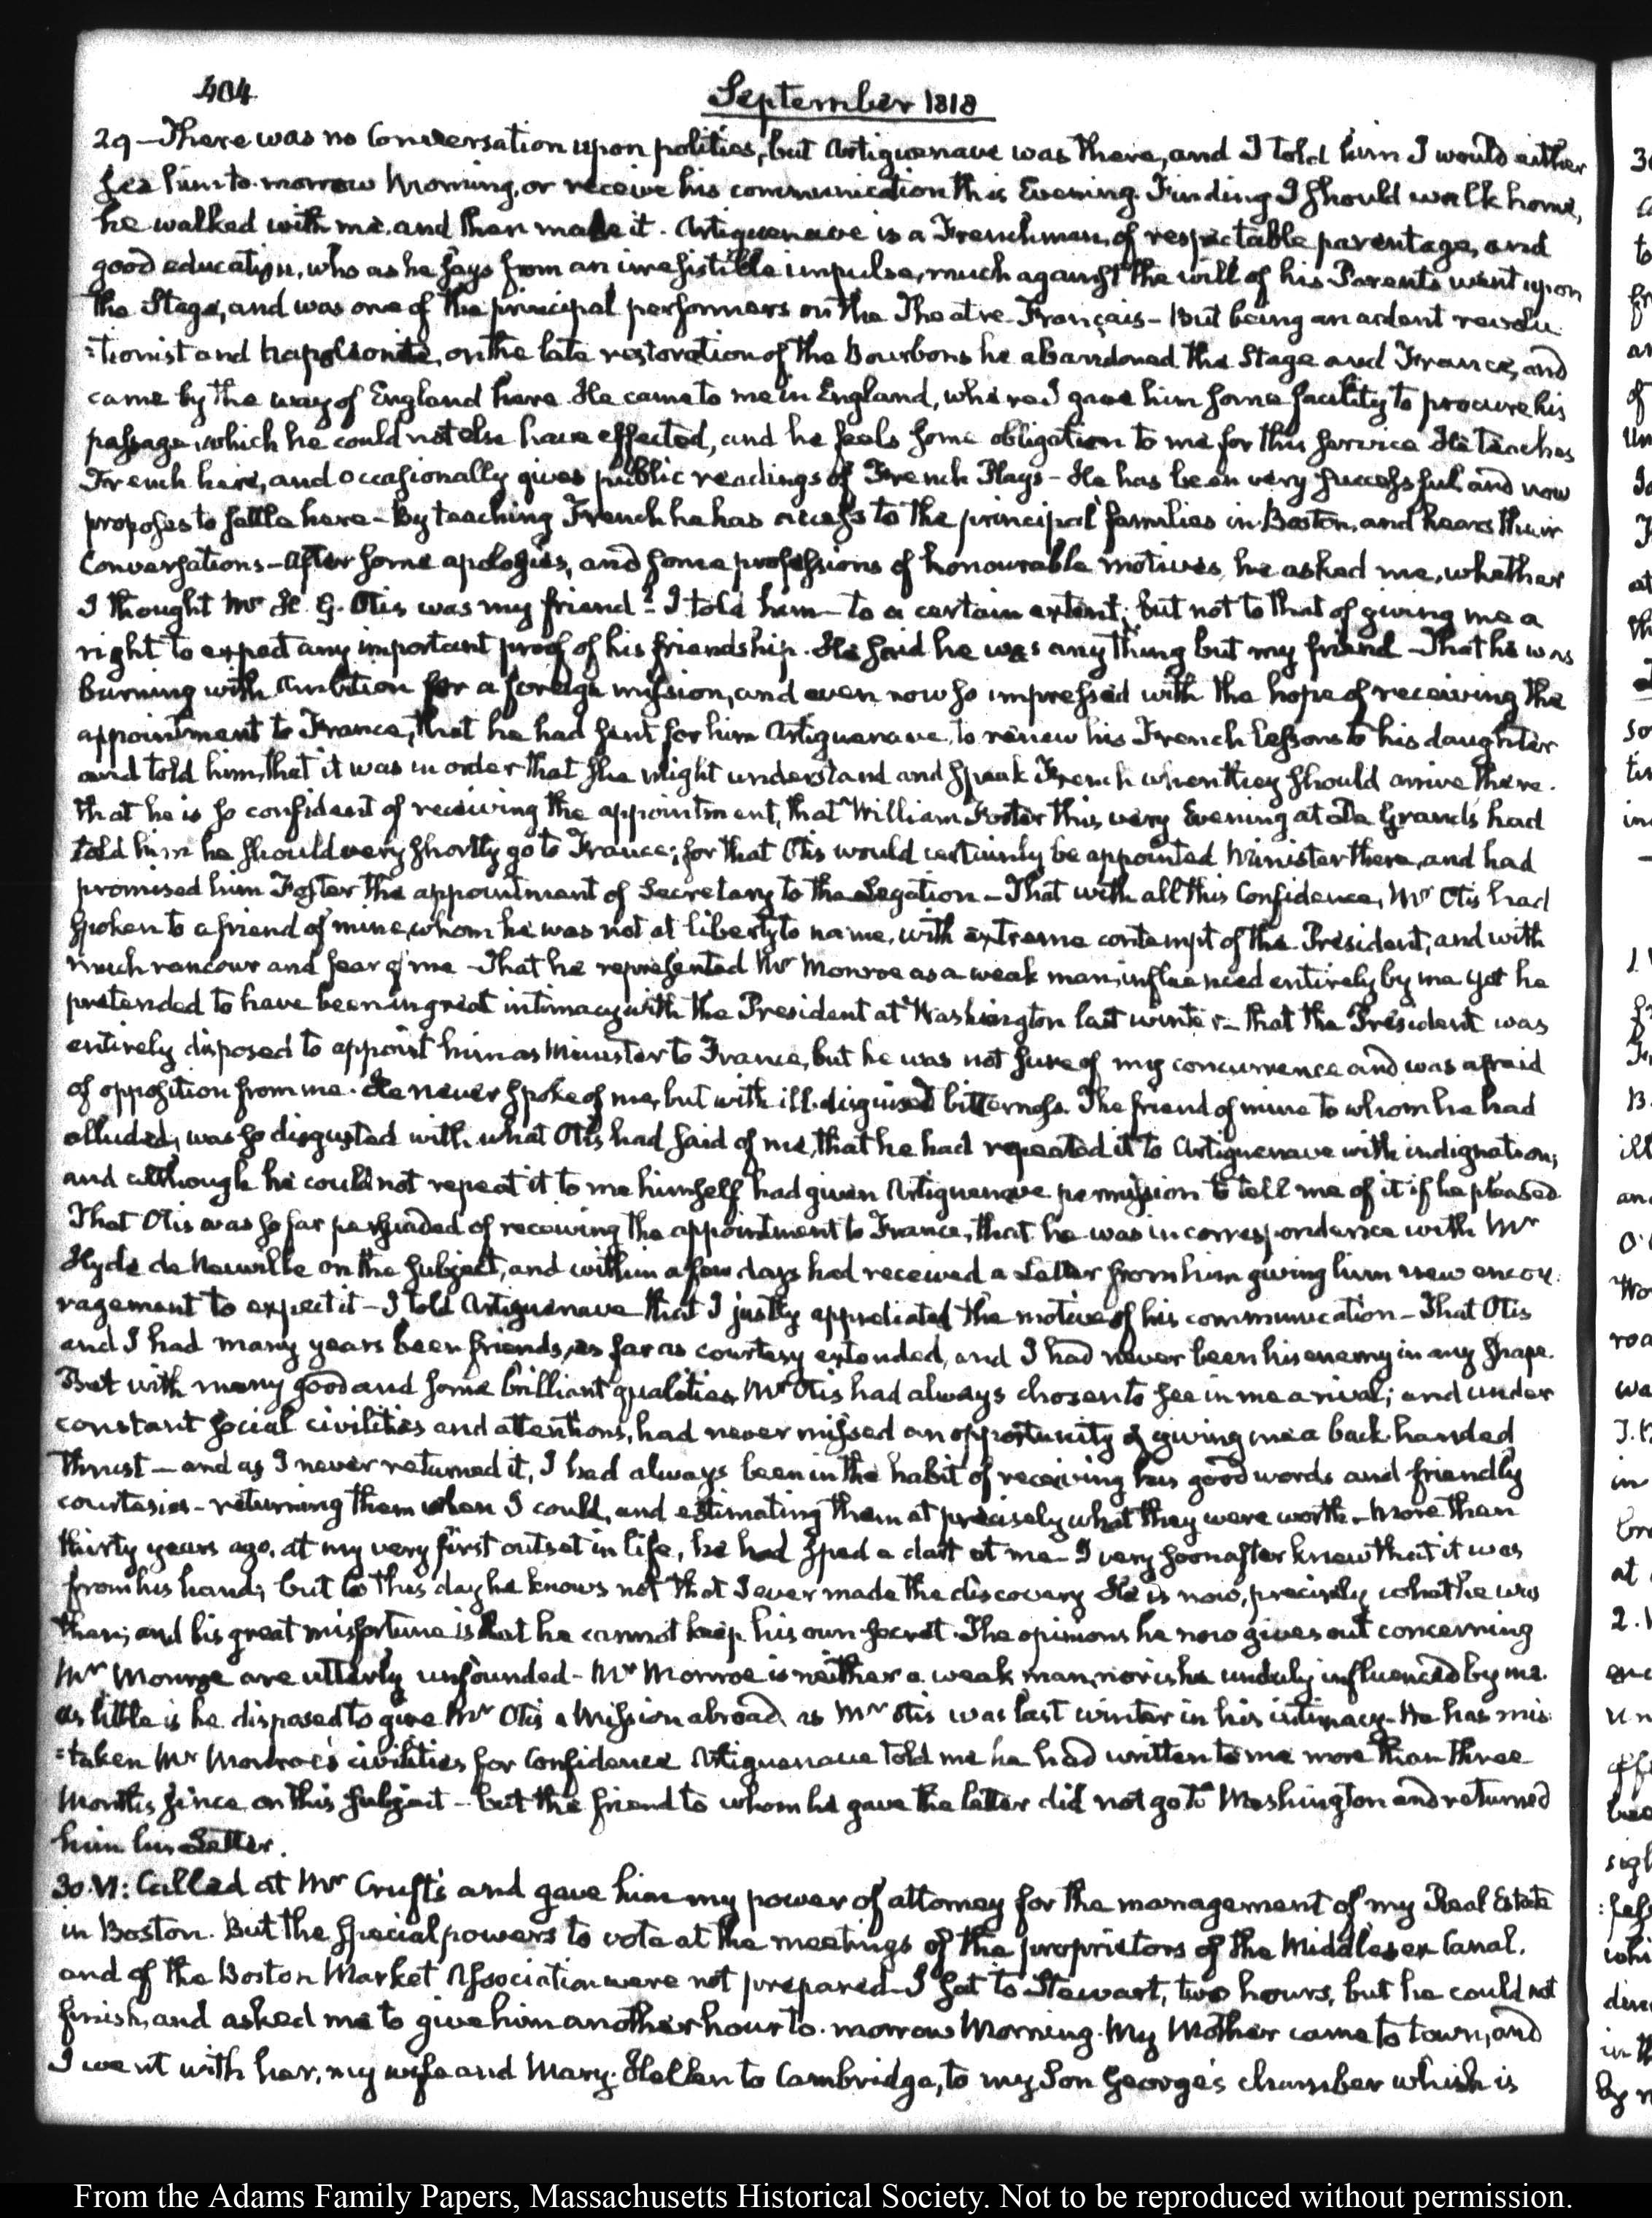 404
September 1818
29 – There was no Conversation upon politics, but Artiguenave was there, and I told him I would either
see him to-morrow Morning, or receive his communication this Evening. Finding I should walk home,
he walked with me, and then made it. Artiguenave is a Frenchman, of respectable parentage, and
good education, who as he says from an irresistible impulse, much against the will of his Parents went upon
the Stage, and was one of the principal performers on the Theatre Français – But being an ardent revolu
:tionist and Napoleonite, on the late restoration of the Bourbons he abandoned the Stage and France, and
came by the way of England here. He came to me in England, where I gave him some facility to procure his
passage, which he could not else have effected, and he feels some obligation to me for this service. He teaches
French here, and occasionally gives public readings of French Plays – He has been very successful and now
proposes to settle here – By teaching French he has access to the principal families in Boston, and hears their
Conversations – After some apologies, and some professions of honourable motives, he asked me, whether
I thought Mr H. G. Otis was my friend? I told him – to a certain extent; but not to that of giving me a
right to expect any important proof of his friendship. He said he was any thing but my friend – That he was
burning with Ambition for a foreign mission, and even now so impressed with the hope of receiving the
appointment to France, that he had sent for him Artiguenave, to renew his French lessons to his daughter
and told him, that it was in order that she might understand and speak French when they should arrive there.
that he is so confident of receiving the appointment, that William Foster this very Evening at De Grand's had
told him he should very shortly go to France; for that Otis would certainly be appointed Minister there, and had
promised him Foster the appointment of Secretary to the Legation – That with all this Confidence, Mr Otis had
spoken to a friend of mine, whom he was not at liberty to name, with extreme contempt of the President, and with
much rancour and fear of me – That he represented Mr Monroe as a weak man, influenced entirely by me yet he
pretended to have been in great intimacy with the President at Washington last winter – that the President was
entirely disposed to appoint him as Minister to France, but he was not sure of my concurrence and was afraid
of opposition from me. He never spoke of me, but with ill-disguised bitterness. The friend of mine to whom he had
alluded, was so disgusted with what Otis had said of me, that he had repeated it to Artiguenave with indignation;
and although he could not repeat it to me himself had given Artiguenave permission to tell me of it if he pleased.
That Otis was so far persuaded of receiving the appointment to France, that he was in correspondence with Mr
Hyde de Neuville on the subject, and within a few days had received a Letter from him giving him new encou:
ragement to expect it – I told Artiguenave that I justly appreciated the motive of his communication – That Otis
and I had many years been friends, as far as courtesy extended, and I had never been his enemy in any shape.
But with many good and some brilliant qualities Mr Otis had always chosen to see in me a rival; and under
constant social civilities and attentions, had never missed an opportunity of giving me a back-handed
thrust – and as I never returned it, I had always been in the habit of receiving his good words and friendly
courtesies – returning them when I could, and estimating them at precisely what they were worth – More than
thirty years ago, at my very first outset in life, he had sped a dart at me – I very soon after knew that it was
from his hand; but to this day he knows not that I ever made the discovery. He is now, precisely what he was
then; and his great misfortune is that he cannot keep his own secret. The opinions he now gives out concerning
Mr Monroe are utterly unfounded – Mr Monroe is neither a weak man, nor is he unduly influenced by me.
as little is he disposed to give Mr Otis a Mission abroad, as Mr Otis was last winter in his intimacy – He has mis
:taken Mr Monroe's civilities for Confidence. Artiguenave told me he had written to me more than three
Months since on this subject – but the friend to whom he gave the letter did not go to Washington and returned
him his Letter.
30. VI: Called at Mr Cruft's and gave him my power of attorney for the management of my Real Estate
in Boston. But the special powers to vote at the meetings of the proprietors of the Middlesex Canal,
and of the Boston Market Association were not prepared – I sat to Stewart, two hours, but he could not
finish, and asked me to give him another hour to-morrow Morning. My Mother came to town, and
I went with her, my wife and Mary Hellen to Cambridge, to my Son George's chamber which is
From the Adams Family Papers, Massachusetts Historical Society. Not to be reproduced without permission.